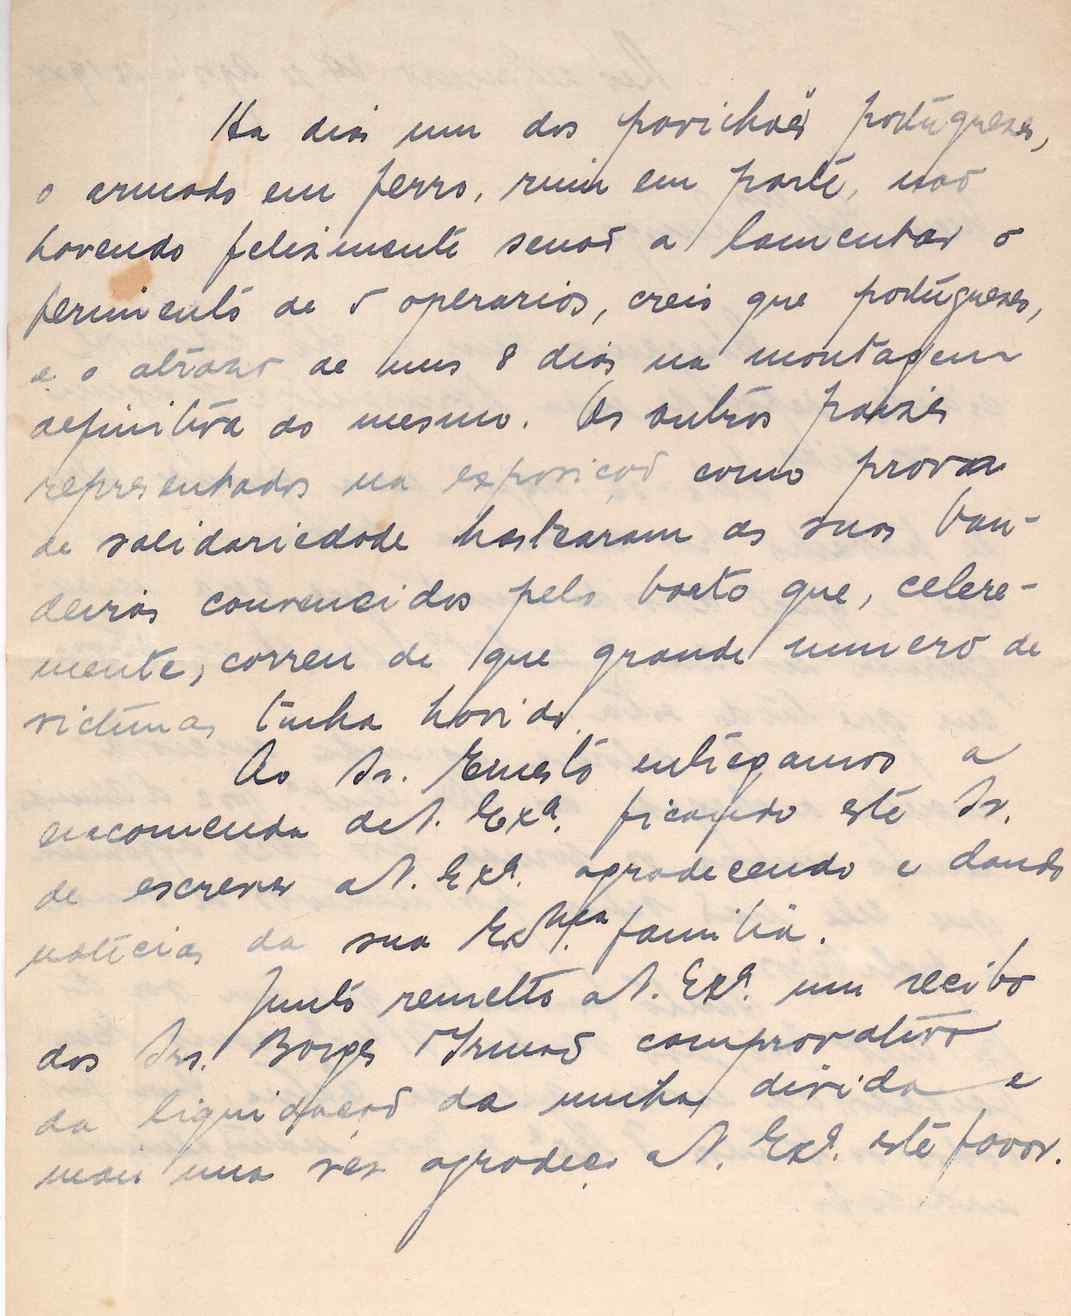 Ha dias um dos pavilhões portuguezes,
o armado em ferro, ruiu em parte, não
havendo felizmente senão a lamentar o
ferimento de 5 operarios, creio que portuguezes,
e o atrazo de uns 8 dias na montagem
definitiva do mesmo. Os outros paizes
representados na exposição como prova
de solidariedade hastearam as suas ban-
deiras convencidos pelo boato que, celere-
mente, correu de que grande numero de
victimas tinha havido.
Ao Sr. Ernesto entregamos a
encomenda de V. Exª. ficando este Sr.
de escrever a V. Exª. agradecendo e dando
noticias da sua Exma. familia.
Junto remetto a V. Exª. um recibo
dos Srs. Borges & Irmão comprovativo
da liquidação da minha divida e
mais uma vez agradeço a V. Exª. este favor.